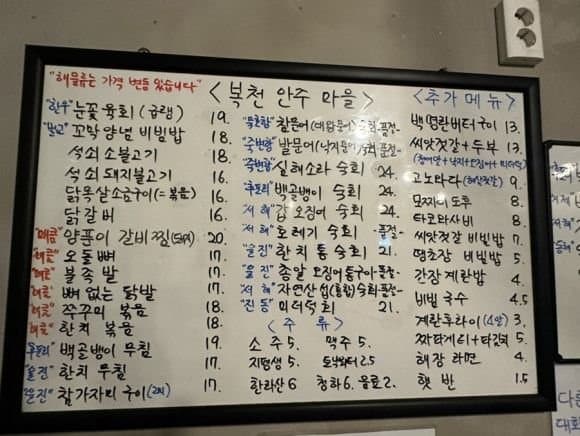 "해물류는 가격 변동 있습니다"
<북천 안주 마을>
"한우"눈꽃 육회(곱랩) 19.
"벌교"꼬막 양념 비빔밥 18.
석쇠 소불고기 18.
석쇠 돼지불고기 16.
닭목살 소금구이(=볶음) 16.
닭갈비 16.
"매콤"양푼이 갈비찜(돼지) 20.
"매콤"오돌뼈 17.
"매콤"불족발 17.
"매콤"뼈 없는 닭발 17.
"매콤"쭈꾸미 볶음 18.
"매콤"한치 볶음 18.
"후포리"백골뱅이 무침 19.
"울진"한치 무침 17.
"울진"참가자미 구이(2미) 17.
"묵호항"찰문어(대왕문어)숙회-품절-
"주변항"발문어(낙지문어)숙회-품절-
"주변항"실해소라 숙회 24.
"후포리"백골뱅이 숙회 24.
"서해"갑오징어 숙회 24.
"서해"호래기 숙회 -품절-
"울진"한치 통숙회 21.
"울진"총알 오징어 통구이-품절-
"서해"자연산 섭(홍합)숙회-품절-
"진동"미더덕 회 21.
<주류>
소주 5. 맥주 5.
지평생 5. 토닉워터 2.5
한라산 6 청하 6. 음료 2.
<추가 메뉴>
백명란버터구이 13.
씨앗젓갈+두부 13.
(청어알+낙지+오징어+미더덕)
고노와다(해삼젓갈) 9.
모찌리 도후 8.
타코와사비 8.
씨앗젓갈 비빔밥 7.
땡초장 비빔밥 5.
간장계란밥 4.
비빔국수 4.5
계란후라이(4알) 3.
짜파게티+타김치 5.
해장라면 4.
햇반 1.5
다른
대회